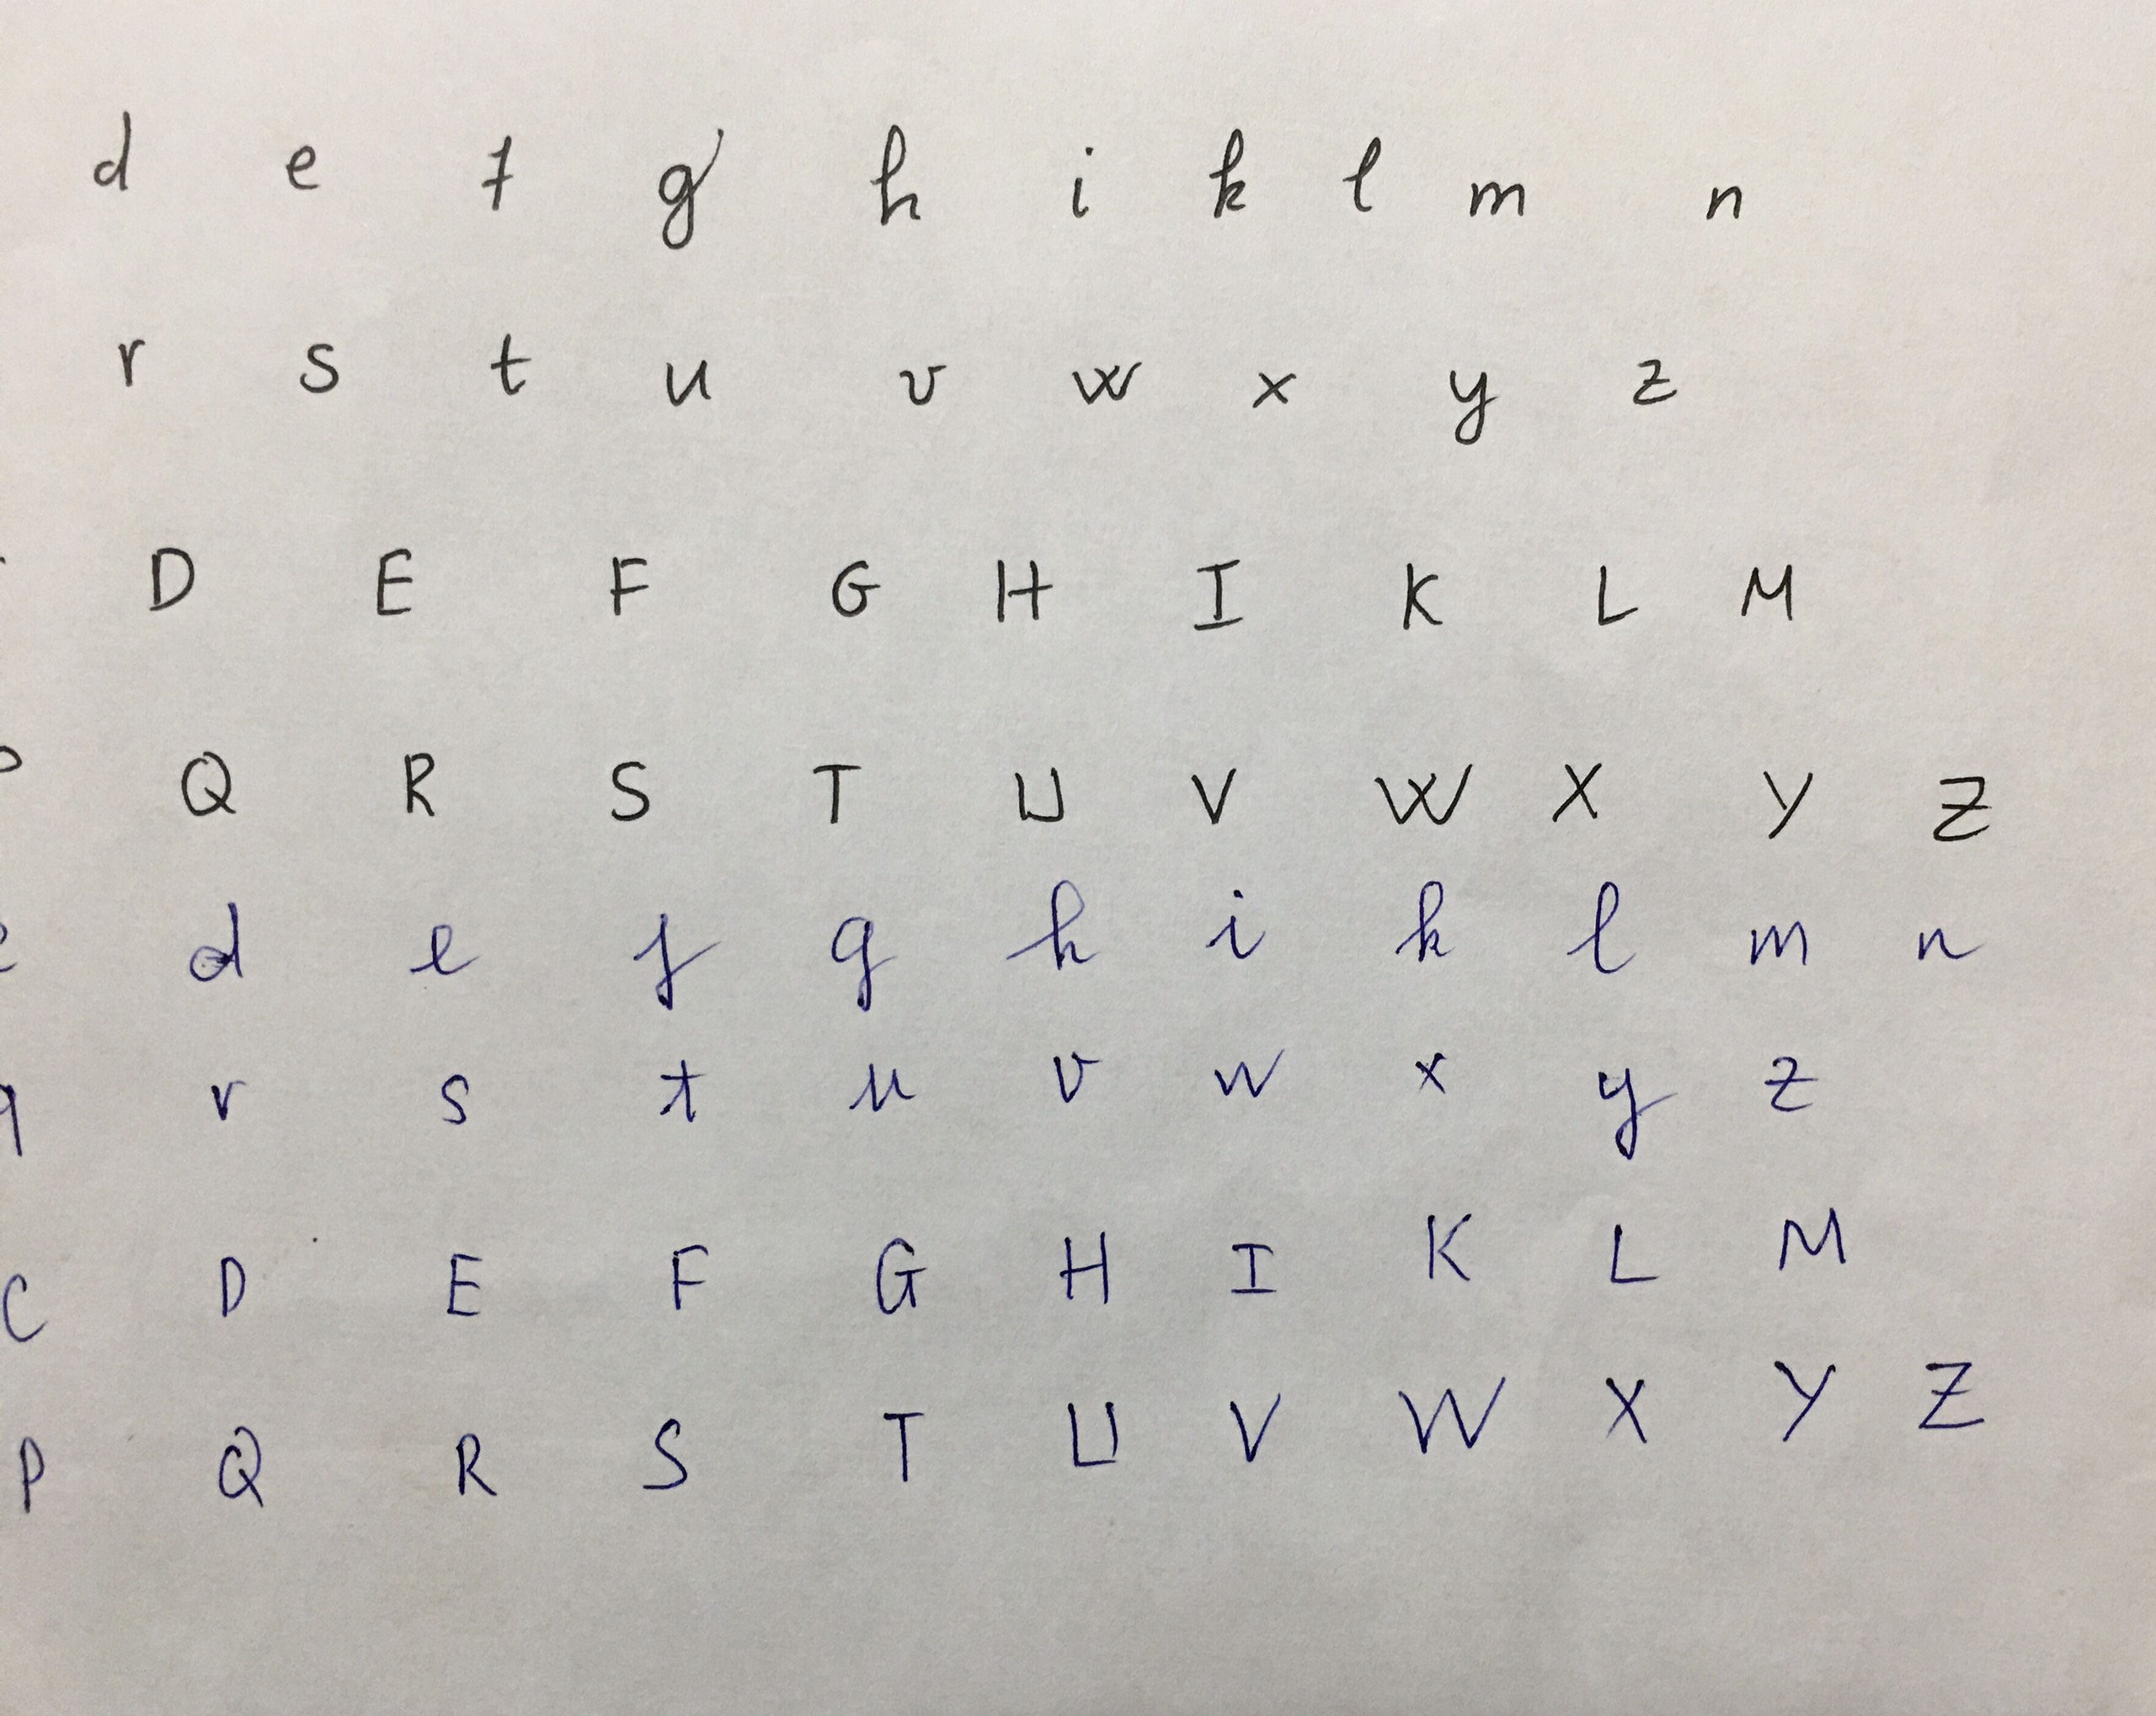 d e f g h i k l m n
r s t u v w x y z
D E F G H I K L M
Q R S T U V W X Y Z
d e f g h i k l m n
q r s t u v w x y z
C D E F G H I K L M
P Q R S T U V W X Y Z